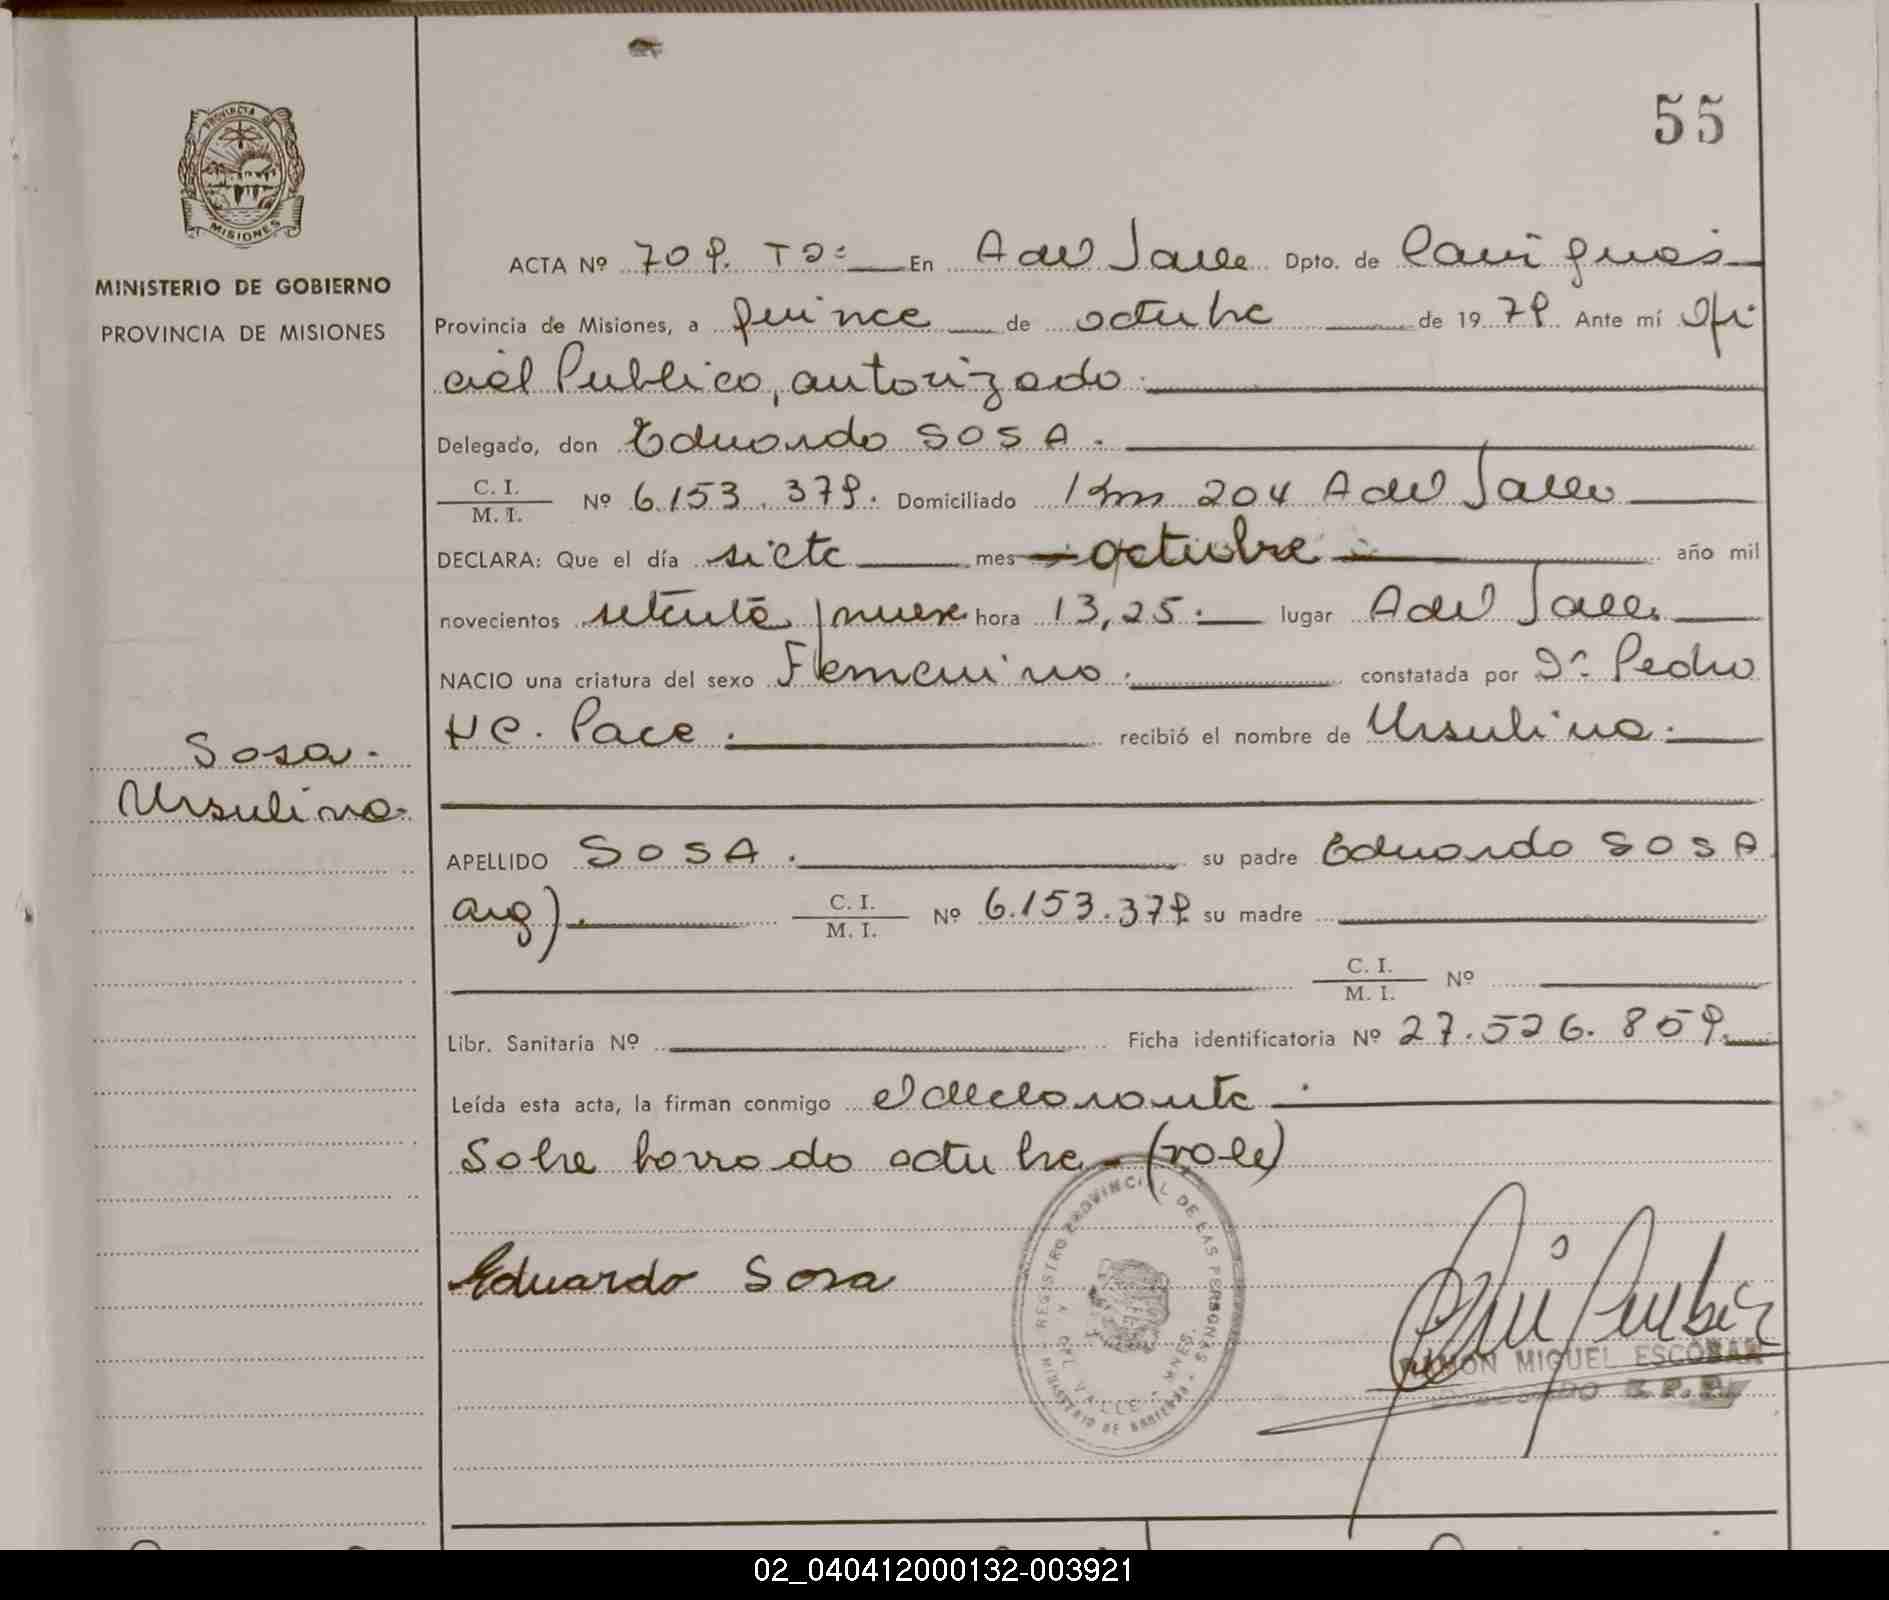 55
PROVINCIA DE
MISIONES
MINISTERIO DE GOBIERNO
PROVINCIA DE MISIONES
ACTA Nº 709. T2º En A del Valle Dpto. de Cainguás
Provincia de Misiones, a quince de octubre de 1979. Ante mí Ofi
cial Publico, autorizado
Delegado, don Eduardo SOSA.
C. I. / M. I. Nº 6.153.379. Domiciliado Km 204 A del Valle
DECLARA: Que el día siete mes octubre año mil
novecientos setenta y nueve hora 13,25. lugar A del Valle
NACIO una criatura del sexo Femenino. constatada por Dr. Pedro
HC. Pace. recibió el nombre de Ursulina.
Sosa.
Ursulina.
APELLIDO SOSA. su padre Eduardo SOSA
arg). C. I. / M. I. Nº 6.153.379 su madre
C. I. / M. I. Nº
Libr. Sanitaria Nº Ficha identificatoria Nº 27.526.859.
Leída esta acta, la firman conmigo el declarante.
Sobre borrado octubre - (vale)
Eduardo Sosa
REGISTRO PROVINCIAL DE LAS PERSONAS
MINISTERIO DE GOBIERNO
A DEL VALLE - MNES.
RAMON MIGUEL ESCOBAR
DELEGADO R. P. P.
02_040412000132-003921